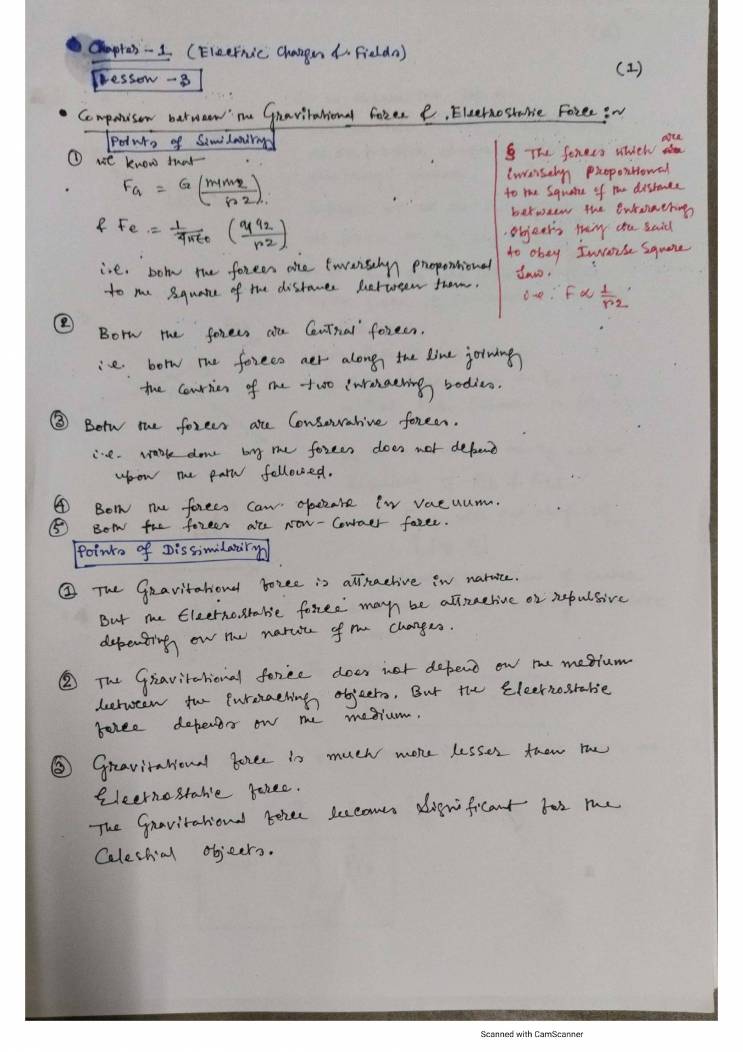 Chapter - 1 (Electric Charges & Fields)
(1)
Lesson - 3
• Comparison between the Gravitational Force & Electrostatic Force :~
Points of Similarity
① We know that
F_G = G (m1m2/r2).
& Fe = 1/4πε0 (q1q2/r2)
i.e. both the forces are inversely proportional
to the square of the distance between them.
§ The forces which are
inversely proportional
to the square of the distance
between the interacting
objects they are said
to obey Inverse Square
Law.
i.e. F ∝ 1/r2
② Both the forces are Central forces.
i.e. both the forces act along the line joining
the centries of the two interacting bodies.
③ Both the forces are Conservative forces.
i.e. work done by the forces does not depend
upon the path followed.
④ Both the forces can operate in vacuum.
⑤ Both the forces are non-contact force.
Points of Dissimilarity
① The Gravitational force is attractive in nature.
But the Electrostatic force may be attractive or repulsive
depending on the nature of the charges.
② The Gravitational force does not depend on the medium
between the interacting objects. But the Electrostatic
force depends on the medium.
③ Gravitational force is much more lesser than the
Electrostatic force.
The Gravitational force becomes significant for the
Celestial objects.
Scanned with CamScanner